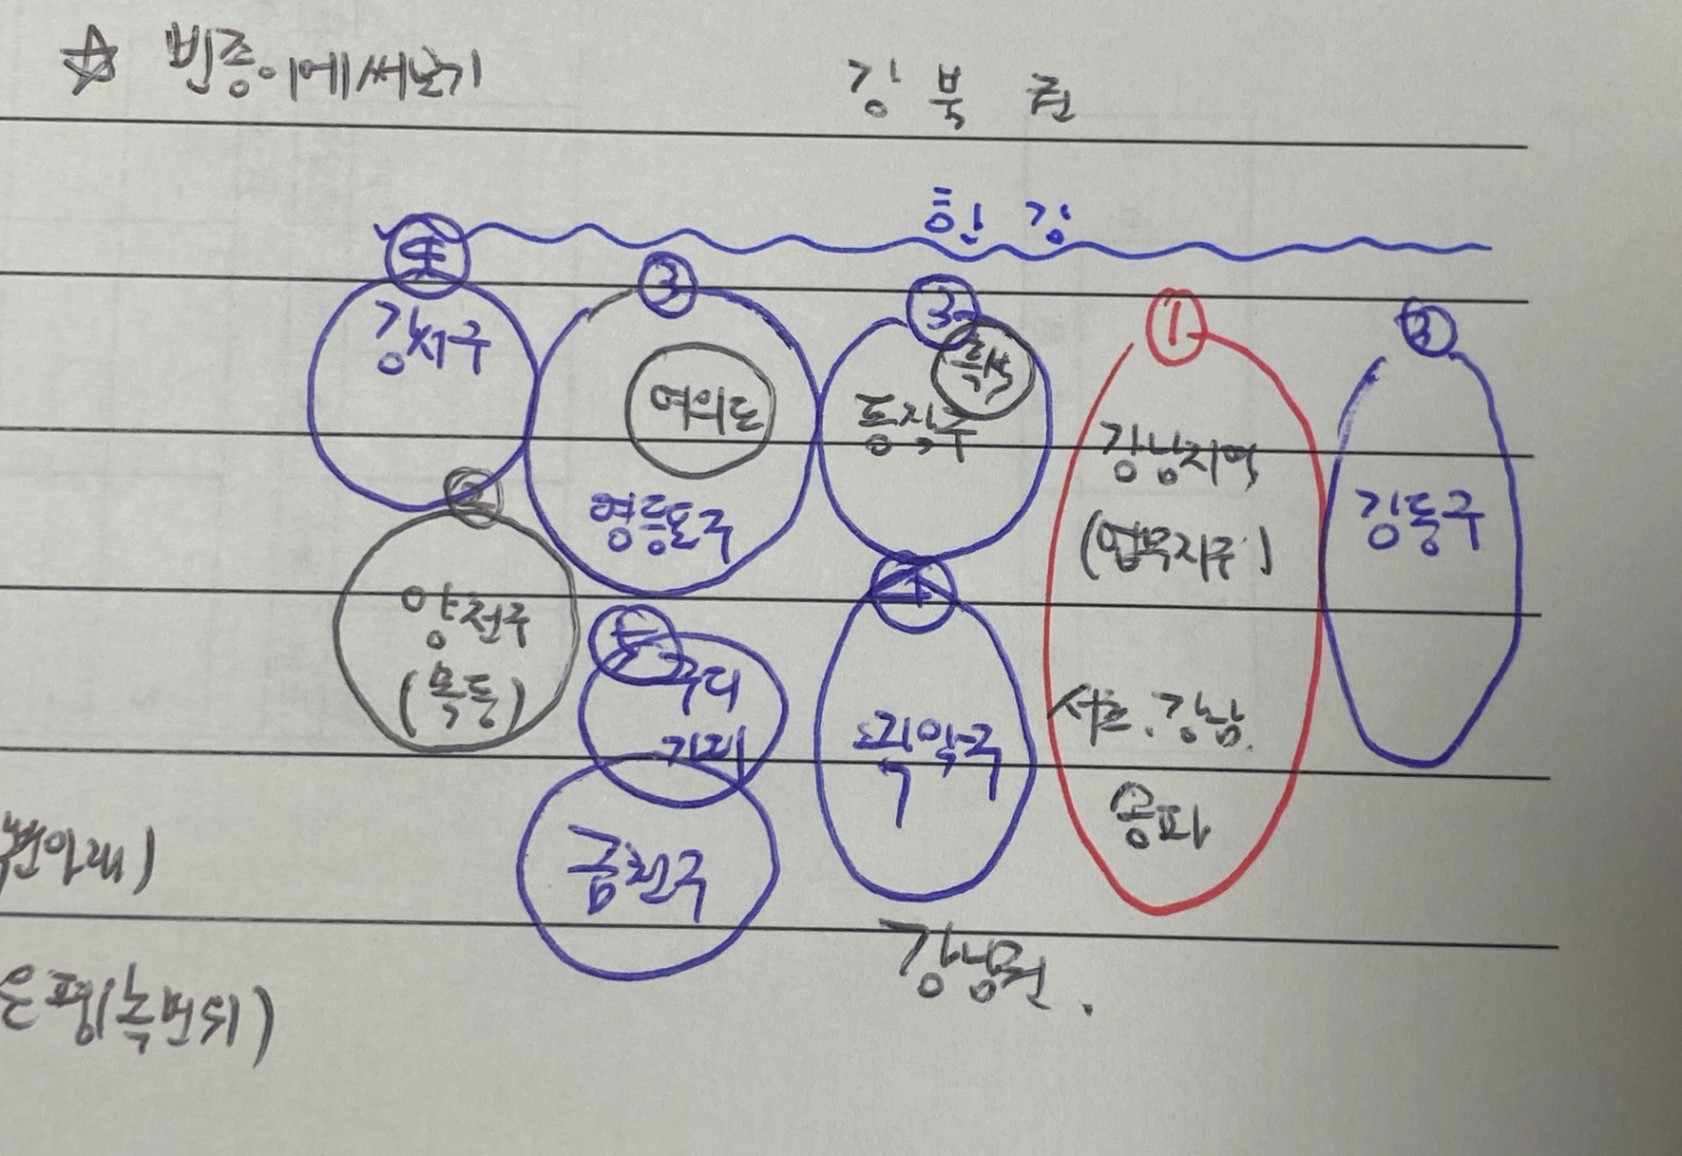 ☆ 빈종이에써보기
강북권
한강
③
③
①
강서구
흑석
여의도
동작구
강남지역
②
영등포구
(업무지구)
강동구
양천구
(목동)
④
구디
가디
서초.강남.
관악구
송파
금천구
강남권.
아래)
은평(녹번위)